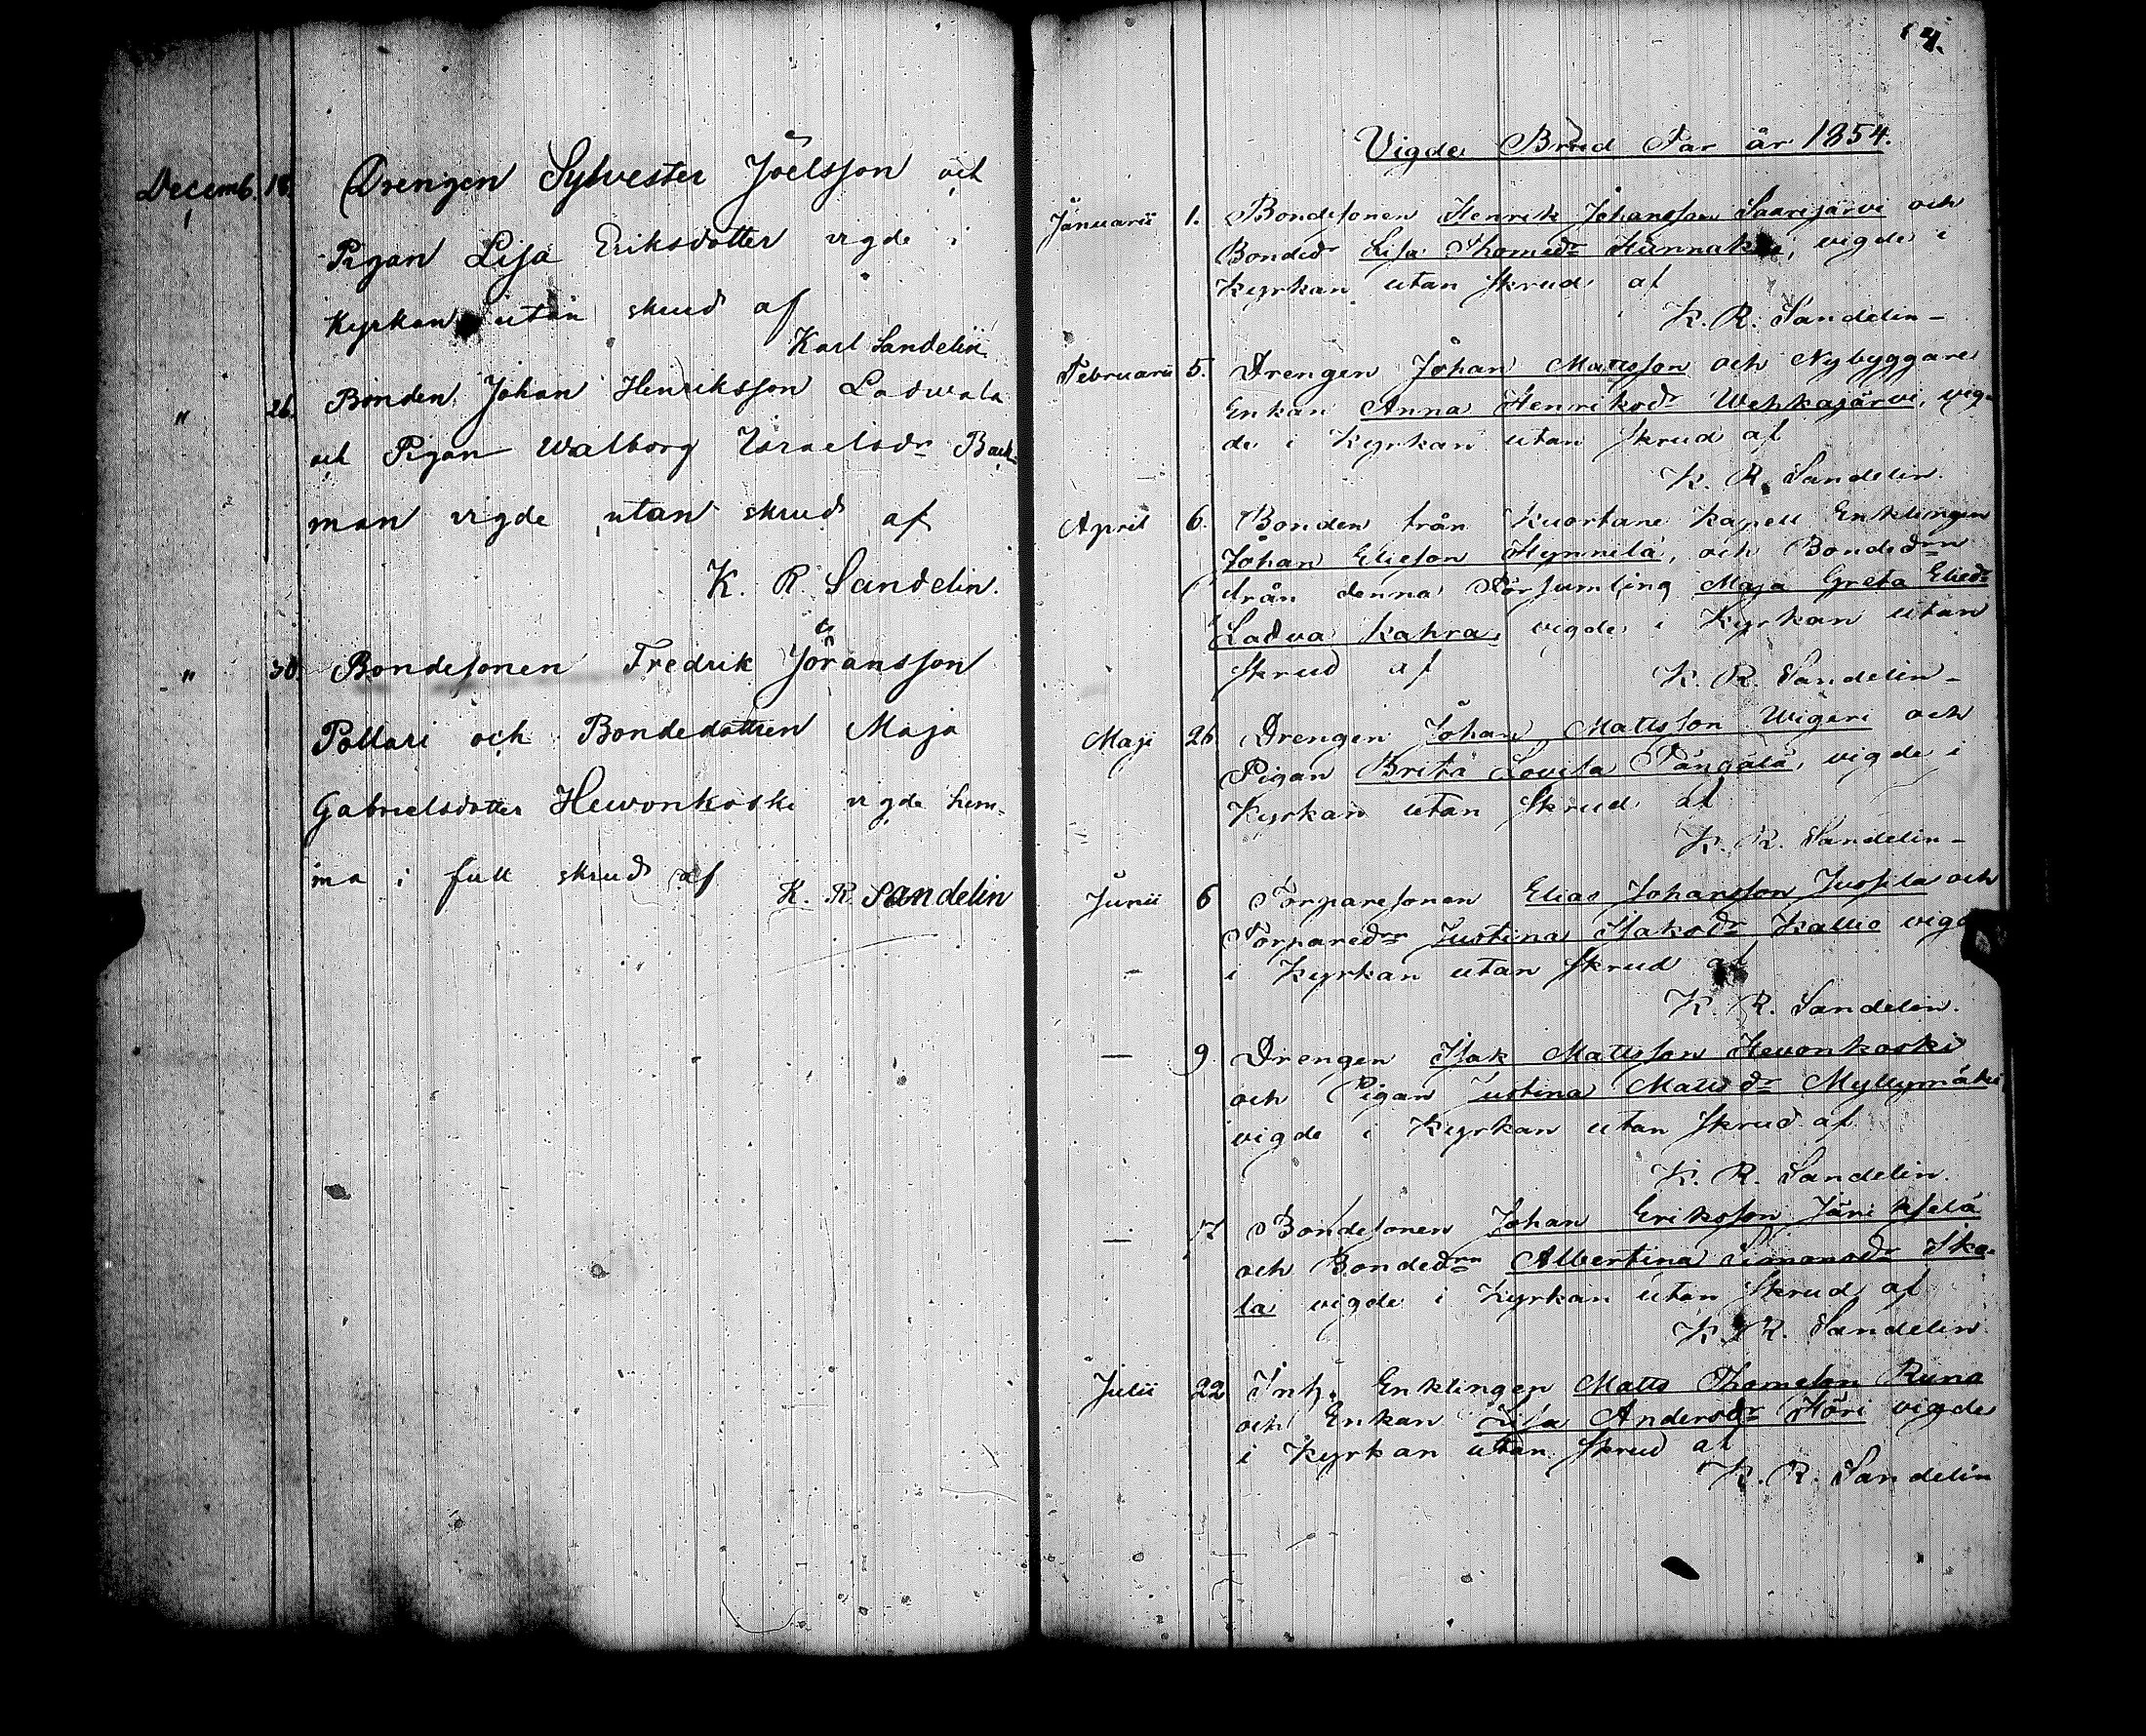 Decemb. 18. Drengen Sylvester Joelsson och
Pigan Lisa Eriksdotter vigde i
Kyrkan utan skrud af
Karl Sandelin.
" 26. Bonden Johan Henriksson Ladwala
och Pigan Walborg Israelsdr Back-
man vigde utan skrud af
K. R. Sandelin.
" 30. Bondesonen Fredrik Jöransson
Pollari och Bondedottren Maja
Gabrielsdotter Hewonkoski vigde hem-
ma i full skrud af
K. R. Sandelin
4.
Vigde Brud Par år 1854.
Januarii 1. Bondesonen Henrik Johansson Saarijärvi och
Bondedr Lisa Thomedr , vigde i
Kyrkan utan skrud af
K. R. Sandelin-
Februarii 5. Drengen Johan Mattsson och Nybyggare
Enkan Anna Henriksdr Wehkajärvi, vig-
de i Kyrkan utan skrud af
K. R. Sandelin.
April 6. Bonden från Kuortane Kapell Enklingen
Johan Elieson Hynnilä, och Bondedrn
från denna Församling Maja Greta Eliedr
Ladva Kahra, vigde i Kyrkan utan
skrud af
K. R. Sandelin-
Maji 26 Drengen Johan Mattsson Wigeri och
Pigan Brita Lovisa Pängälä, vigde i
Kyrkan utan skrud af
K. R. Sandelin-
Junii 6 Torparesonen Elias Johansson Jussila och
Torparedrn Justina Isaksdr Kallio vigde
i Kyrkan utan skrud af
K. R. Sandelin.
— 9. Drengen Isak Mattsson Hevonkoski
och Pigan Justina Mattsdr Myllymäki
vigde i Kyrkan utan skrud af
K. R. Sandelin.
— 17 Bondesonen Johan Eriksson
och Bondedrn Albertina Simonsdr Ska-
la vigde i Kyrkan utan skrud af
K. R. Sandelin
Julii 22 Inh. Enklingen Matts Thomeson Runa
och Enkan Andersdr vigde
i Kyrkan utan skrud af
K. R. Sandelin